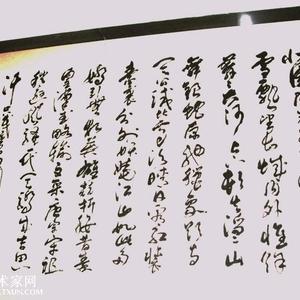 雪飘望长城内外惟余
莽莽大河上下顿失滔滔山
舞银蛇原驰蜡象欲与
天公试比高须晴日看红装
素裹分外妖娆江山如此多
娇引无数英雄竞折腰昔秦
皇汉武略输文采唐宗宋祖
稍逊风骚一代天骄成吉思
术家网
TXUN.COM